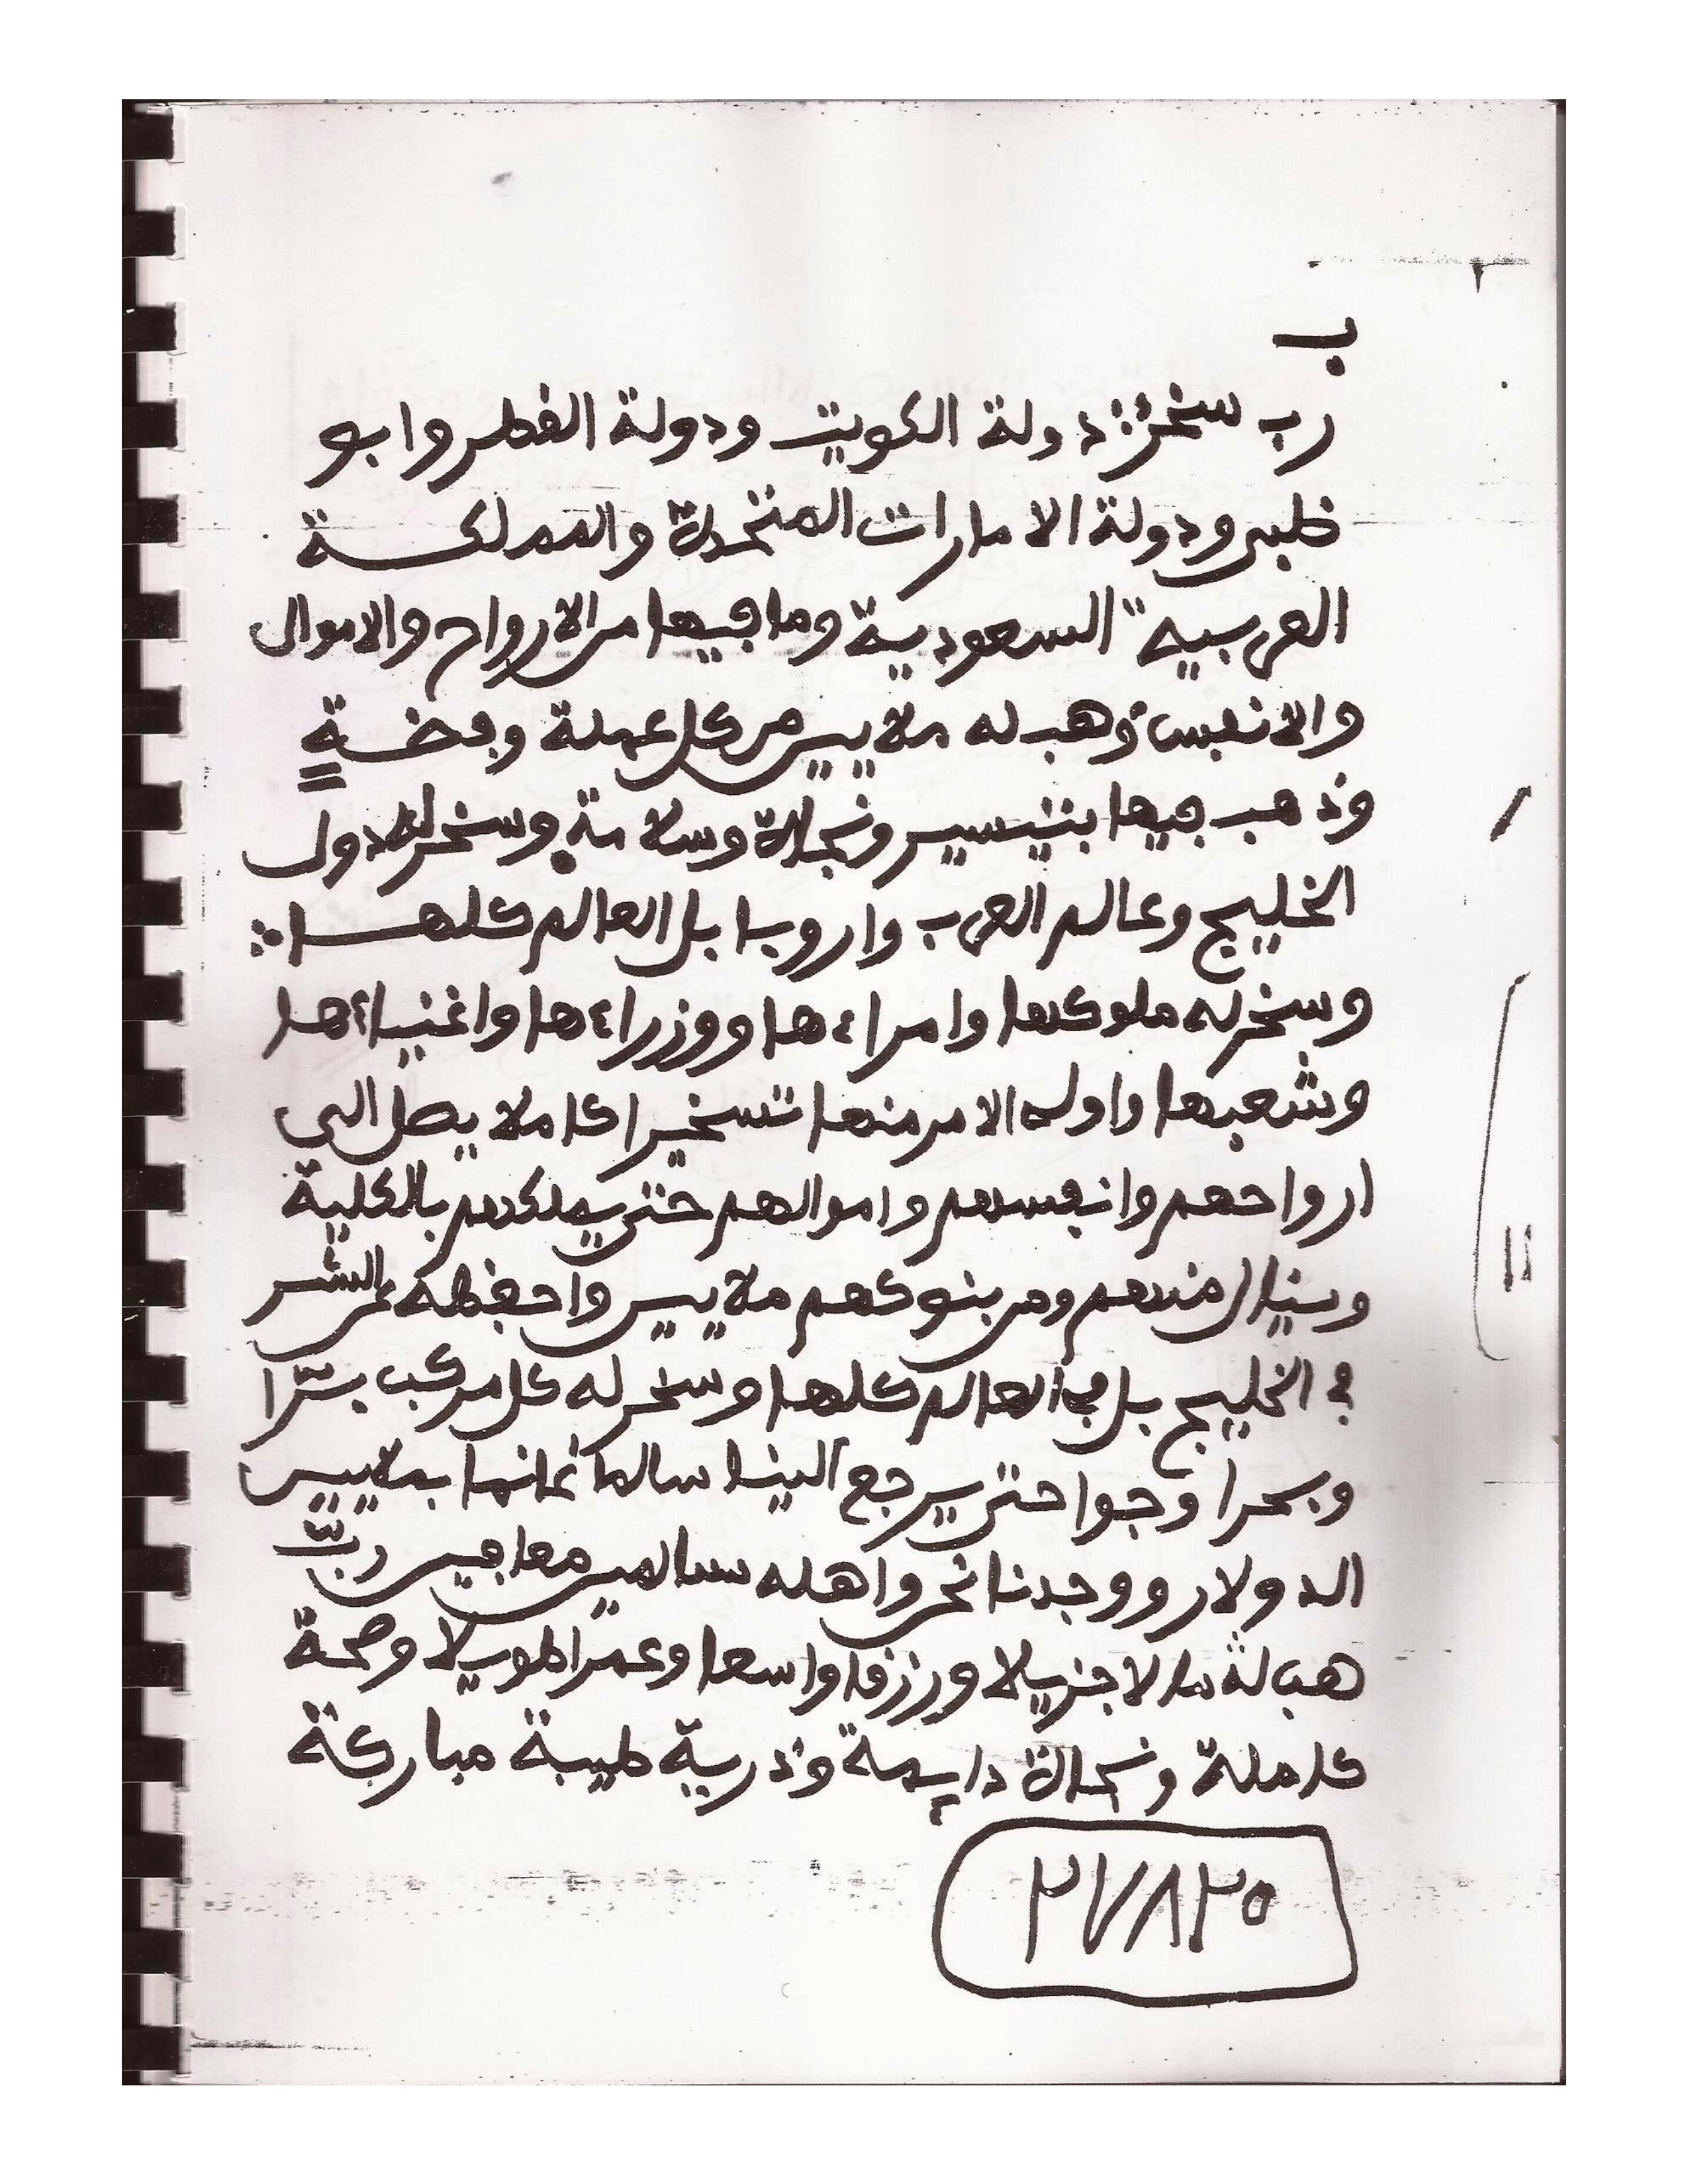 ب
رب سخر: دولة الكويت ودولة القطر وابو
ظبي ودولة الامارات المتحدة والمملكة
العربيه السعودية وما فيها من الارواح والاموال
والانفس وهب له ملايين من كل عملة وفضةٍ
وذهب فيها بتيسير ونجاة وسلامةٍ وسخر له دول
الخليج وعالم العرب واروبا بل العالم كلها
وسخر له ملوكها وامراءها ووزراءها واغنياءها
وشعبها واولي الامر منها تسخيرا كاملا يصل الى
ارواحهم وانفسهم واموالهم حتى يملكهم بالكلية
وينال منهم ومن بنوكهم ملايين واحفظه من الشر
في الخليج بل في العالم كلها وسخر له كل مركب برّا
وبحرا وجوا حتى يرجع الينا سالما غانما بملايين
الدولار ووجدنا نحن واهله سالمين معافين ربّ
هب له مالا جزيلا ورزقا واسعا وعمرا طويلا وصحة
كاملة ونجاة دايمة وذرية طيبة مباركة
٢٧٨٢٥